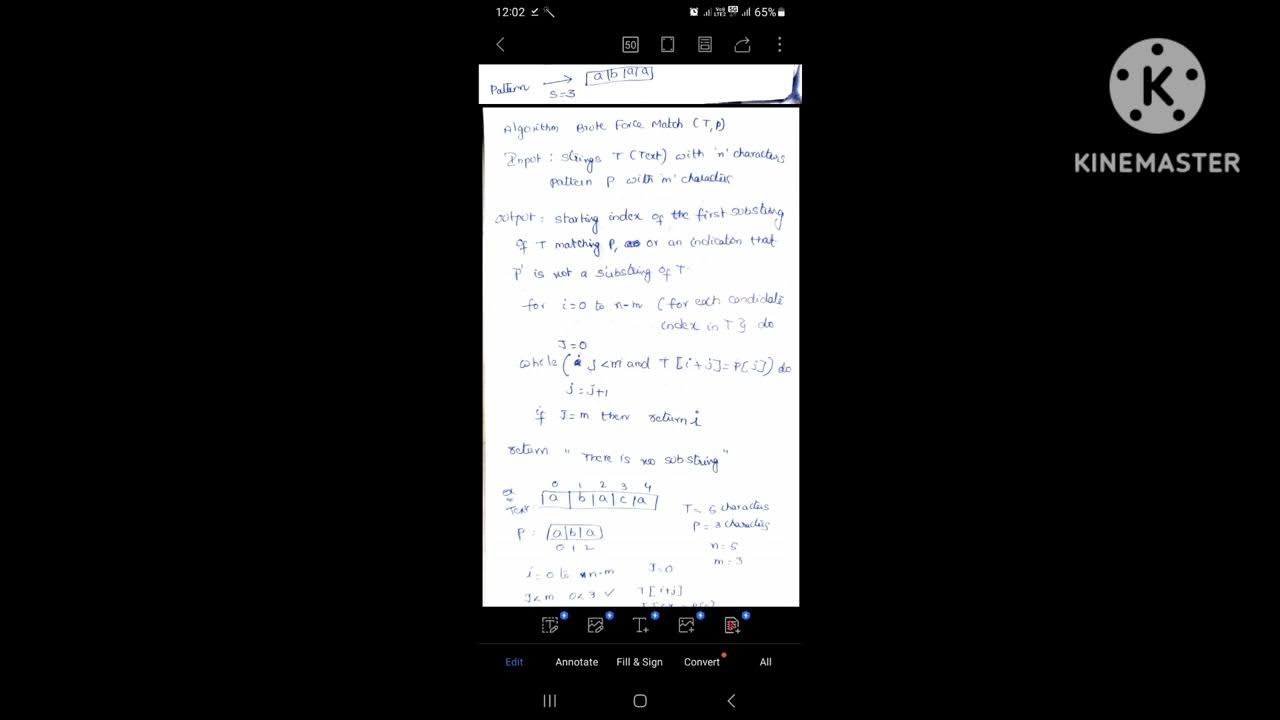 12:02
Vo)) LTE2 5G 65%
50
Pattern → a|b|a|a
S=3
Algorithm Brute Force Match (T,P)
Input : strings T (Text) with 'n' characters
pattern P with 'm' characters
output : starting index of the first substring
of T matching P, or an indication that
'P' is not a substring of T.
for i=0 to n-m (for each candidate
index in T} do
J=0
while ( j <m and T [i+j]=P[j]) do
j = j+1
if J=m then return i
return " There is no substring"
0 1 2 3 4
ex
Text a | b | a | c | a
T= 5 characters
P = 3 characters
P : a|b|a
0 1 2
n=5
m=3
i=0 to n-m J=0
J<m 0<3 ✓ T[i+j]
Edit Annotate Fill & Sign Convert All
K
KINEMASTER